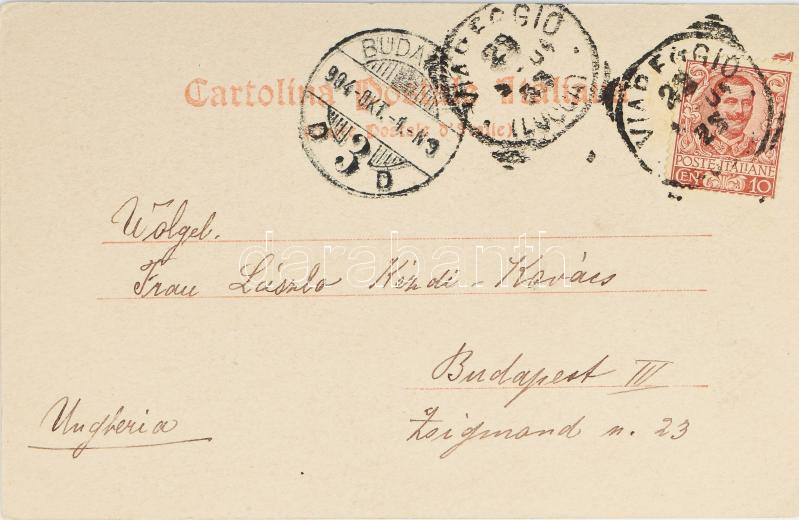 Cartolina Postale Italiana
BUDA
904-OKT.-1. N3
D 3 D
VIAREGGIO
(LUCCA)
VIAREGGIO
23
POSTE ITALIANE
CEN. 10
Wôlgel.
Frau László Kézdi-Kovács
Budapest III
Zsigmond u. 23
Ungheria
darabanth.com